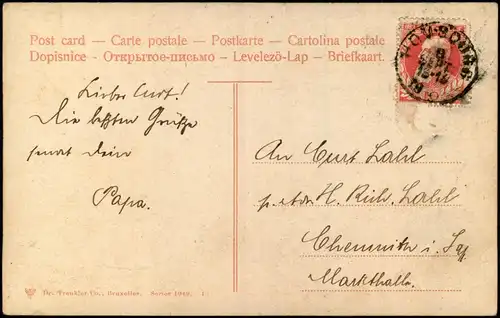 Post card – Carte postale – Postkarte – Cartolina postale
Dopisnice - Открытое-письмо – Levelezö-Lap – Briefkaart.
Lieber Curt!
Die letzten Grüße
sendet Dein
Papa.
An Curt Lahl
H. Rich. Lahl
Chemnitz i. Sa
Markthalle.
Bruxelles.